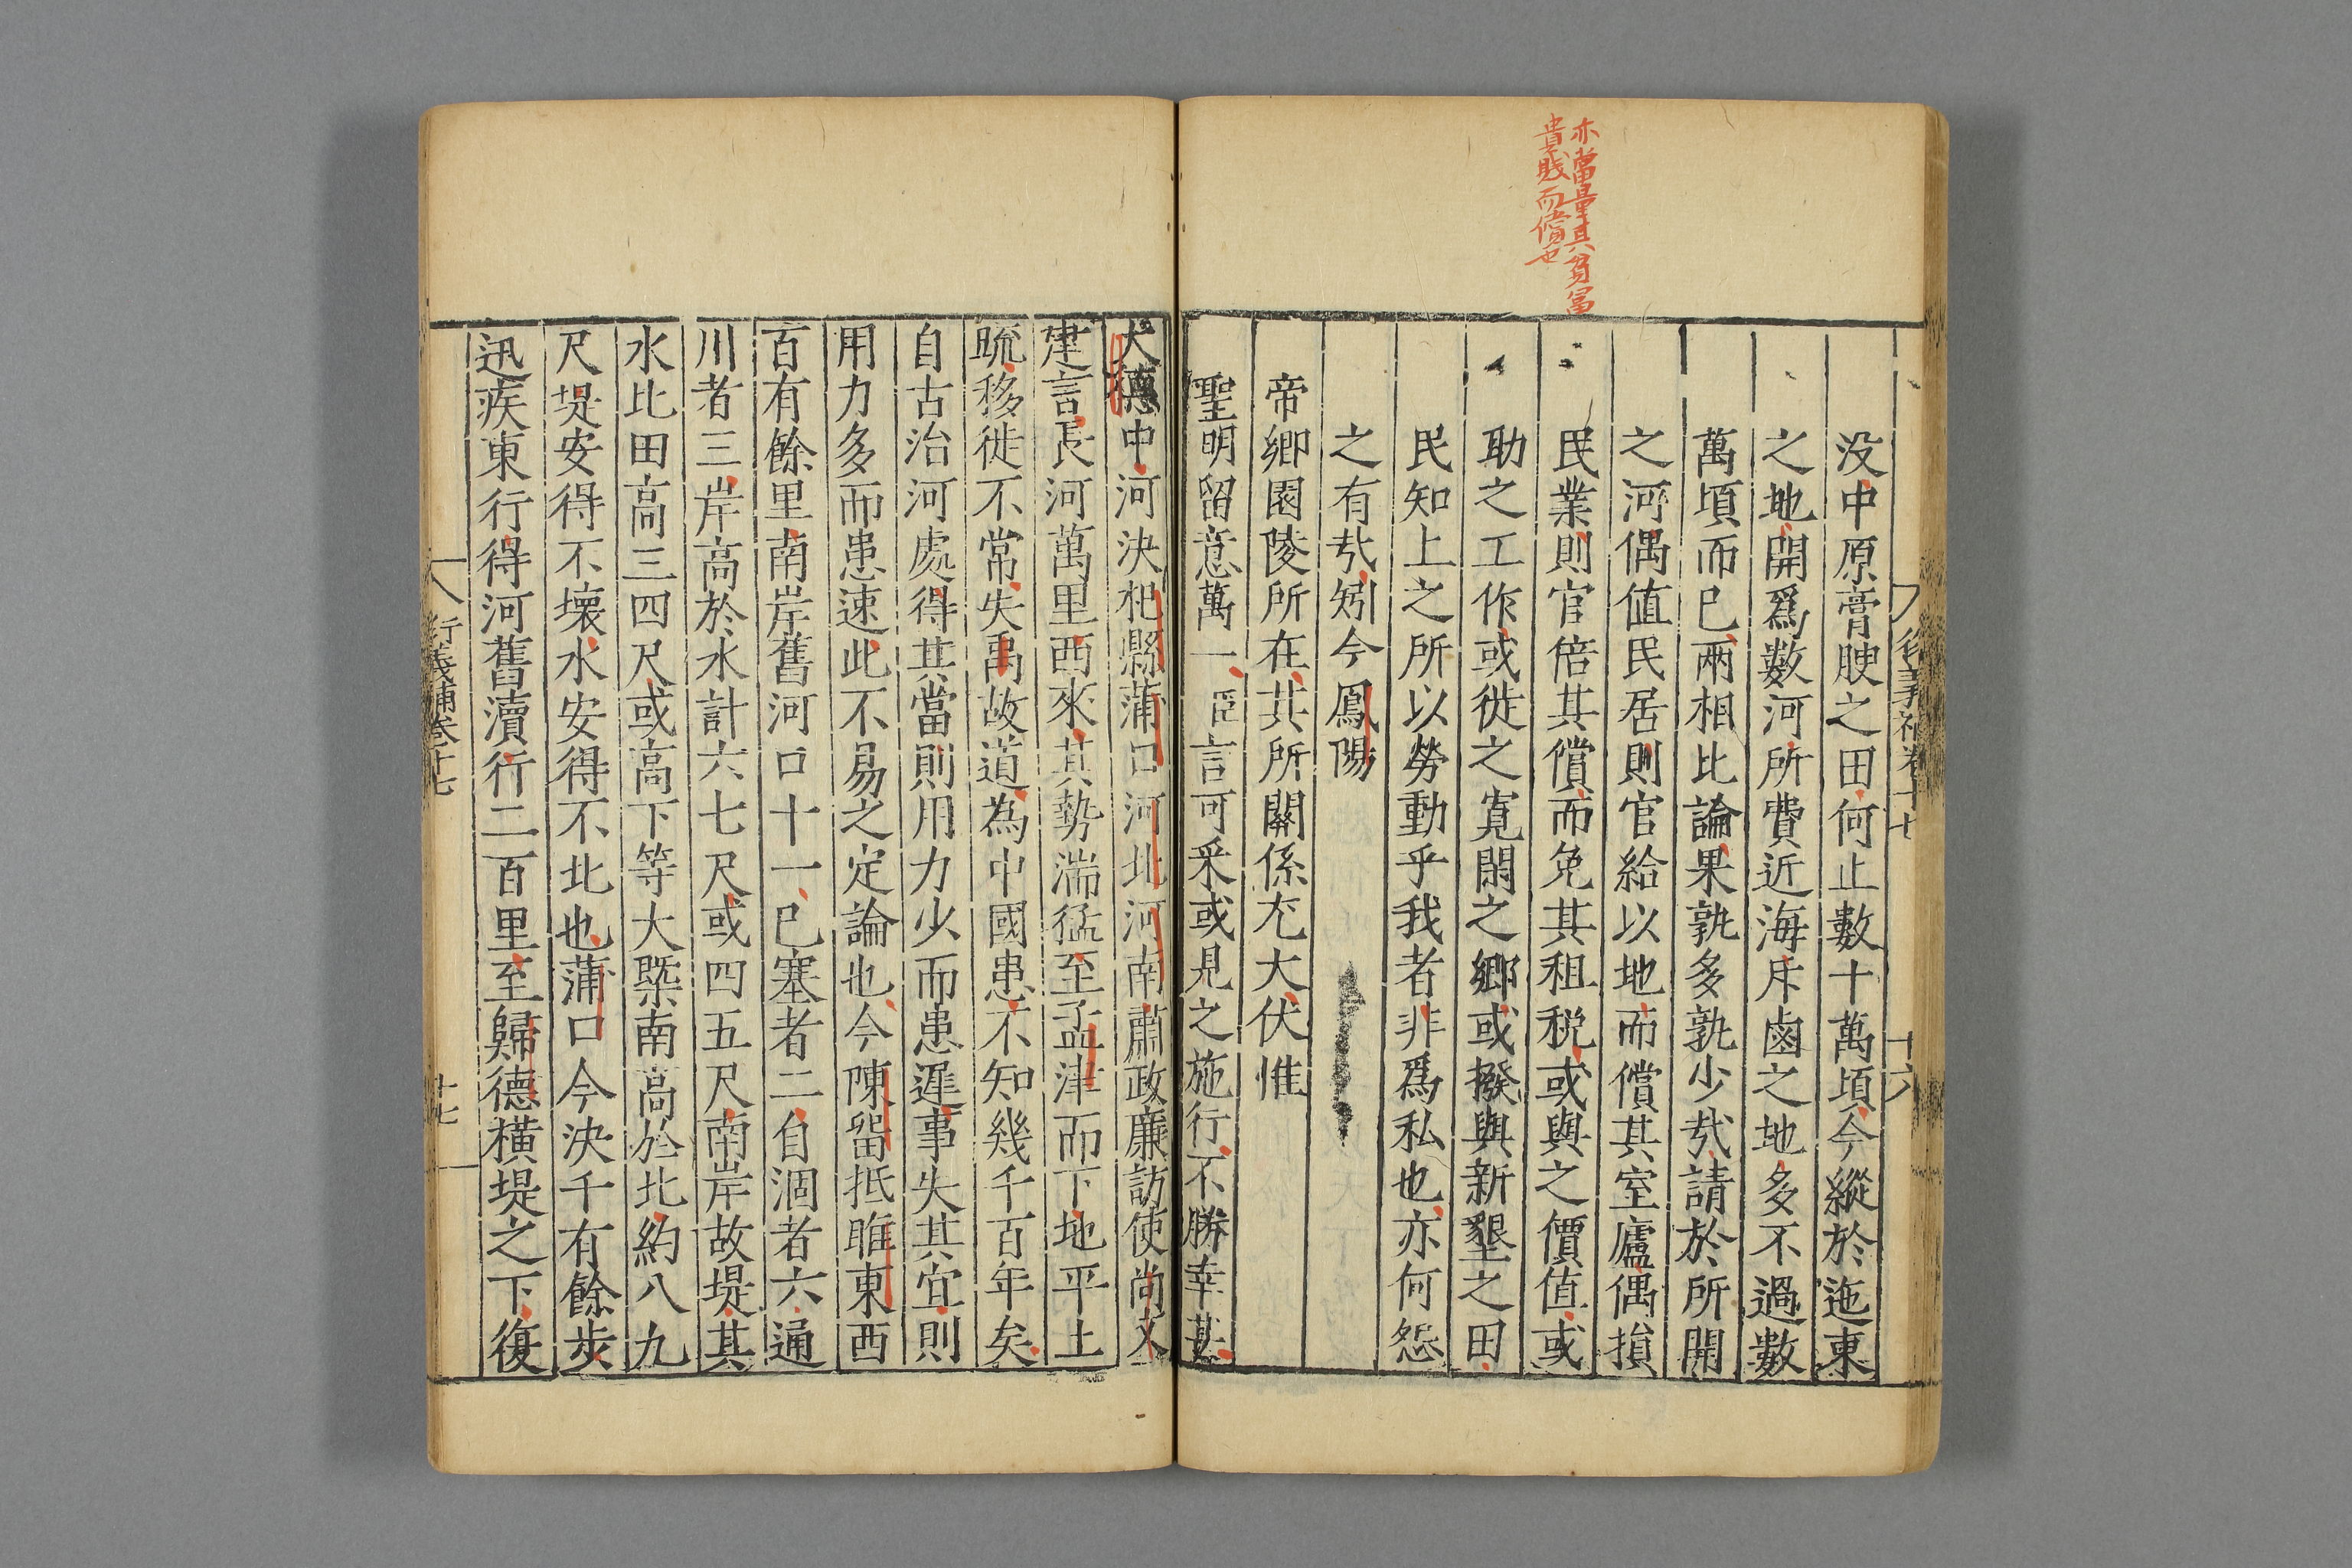 亦當量其貧富
貴賤而償也
没中原膏腴之田何止數十萬頃今縱於迤東
之地開爲數河所費近海斥鹵之地多不過數
萬頃而已兩相比論果孰多孰少㢤請於所開
之河偶值民居則官給以地而償其室廬偶損
民業則官倍其償而免其租稅或與之價值或
助之工作或徙之寛閑之鄉或撥與新墾之田
民知上之所以勞動乎我者非爲私也亦何怨
之有㢤矧今鳳陽
帝鄉園陵所在其所關係尤大伏惟
聖明留意萬一臣言可采或見之施行不勝幸甚
大德中河決杞縣蒲口河北河南肅政廉訪使尚文
建言長河萬里西來其勢湍猛至孟津而下地平土
疏移徙不常失禹故道為中國患不知幾千百年矣
自古治河處得其當則用力少而患遲事失其宜則
用力多而患速此不易之定論也今陳留抵睢東西
百有餘里南岸舊河口十一已塞者二自涸者六通
川者三岸高於水計六七尺或四五尺南岸故堤其
水比田高三四尺或高下等大槩南高於北約八九
尺堤安得不壞水安得不北也蒲口今決千有餘步
迅疾東行得河舊瀆行二百里至歸德橫堤之下復
衍義補卷十七
十七